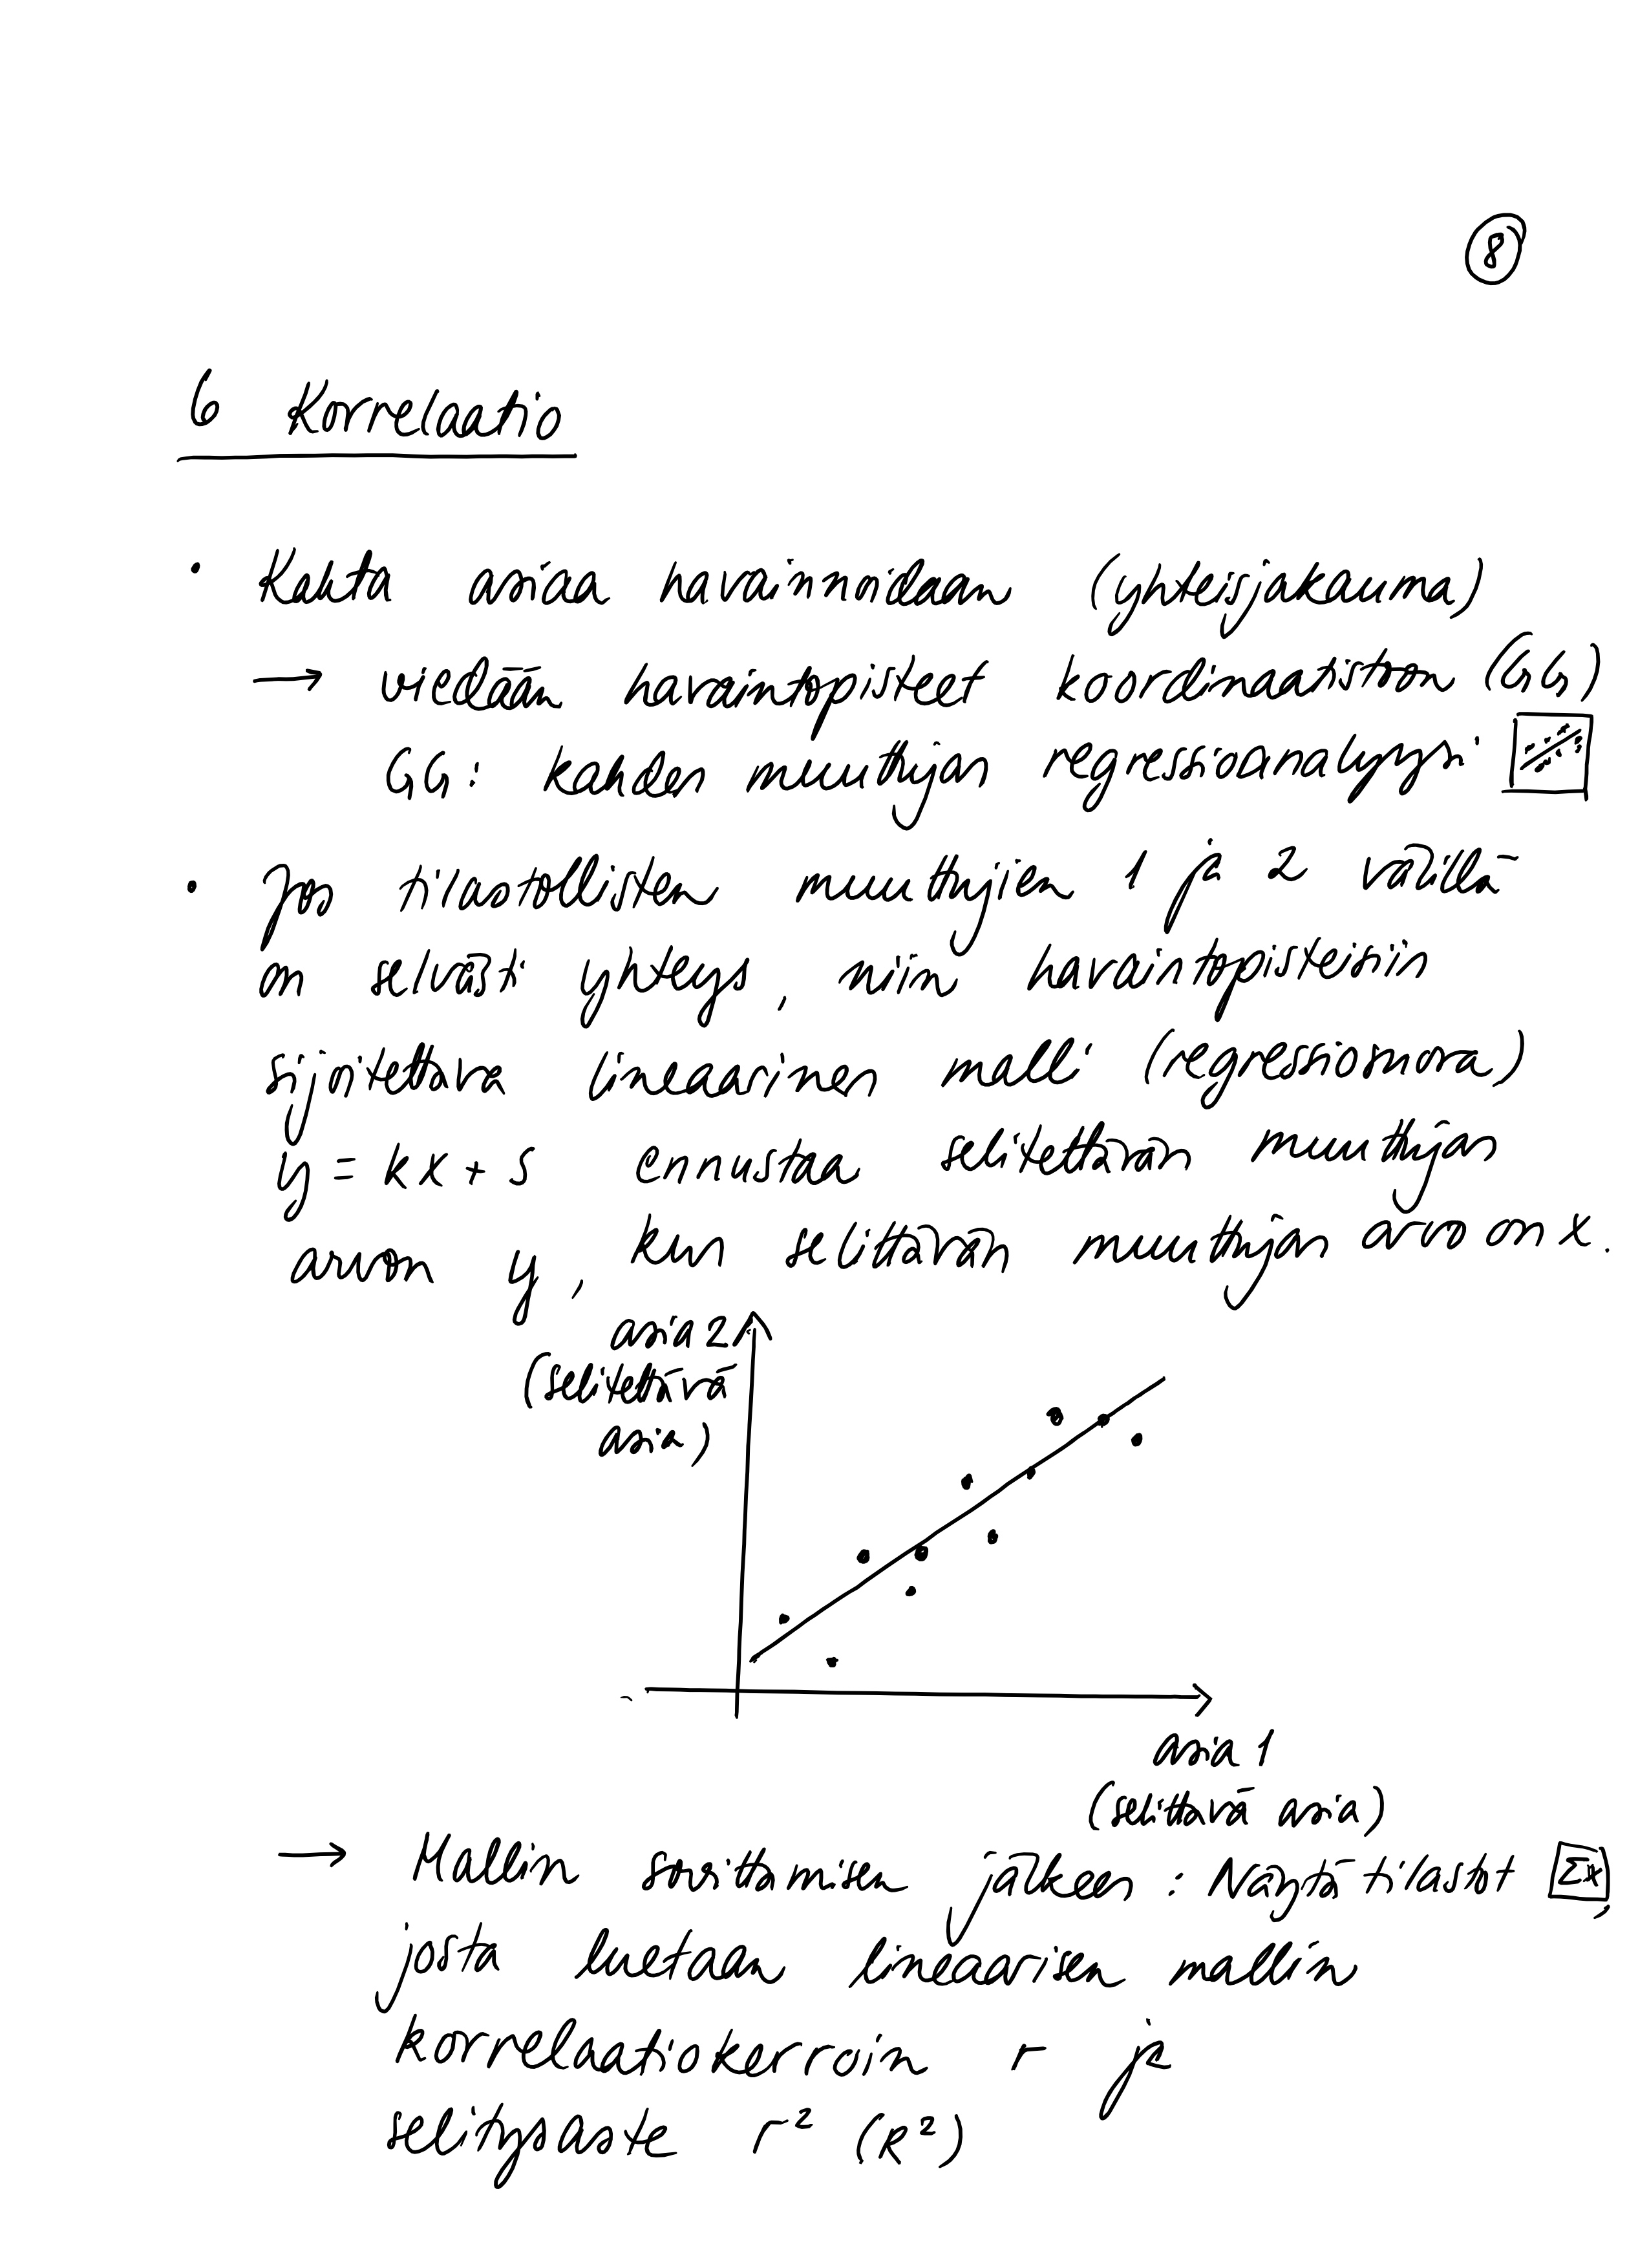 8
6 Korrelaatio
• Kahta asiaa havainnoidaan (yhteisjakauma)
→ viedään havaintopisteet koordinaatistoon (GG)
GG: kahden muuttujan regressioanalyysi
• Jos tilastollisten muuttujien 1 ja 2 välillä
on selvästi yhteys, niin havaintopisteisiin
sijoitettava lineaarinen malli (regressiosuora)
y = kx + s ennustaa selitettävän muuttujan
arvon y, kun selittävän muuttujan arvo on x.
asia 2
(selitettävä
asia)
asia 1
(selittävä asia)
→ Mallin sovittamisen jälkeen: Näytä tilastot Σx,
josta luetaan lineaarisen mallin
korrelaatiokerroin r ja
selitysaste r² (R²)